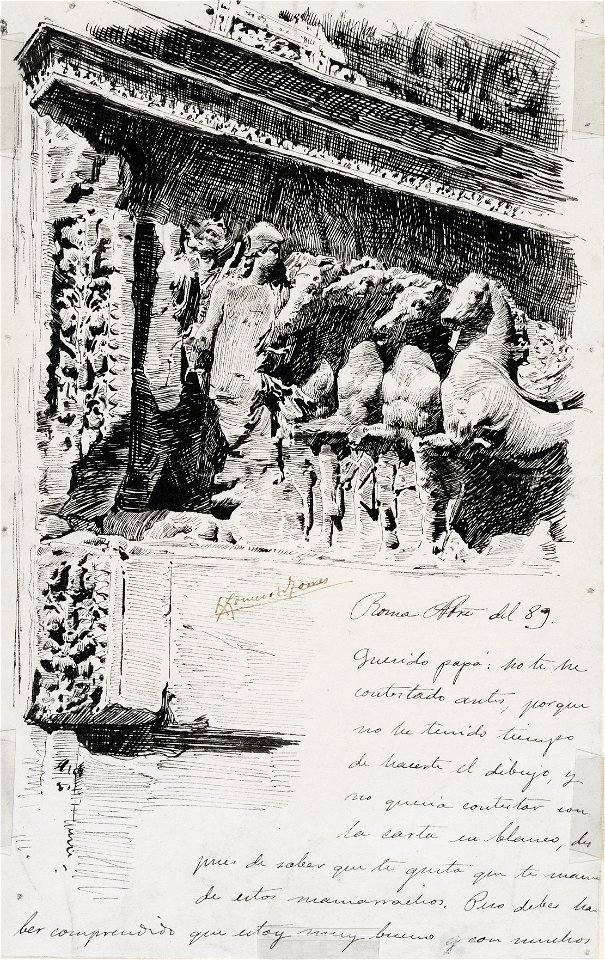 Romero de Torres
Roma Obre del 89.
Querido papá: no te he
contestado antes, porque
no he tenido tiempo
de hacerte el dibujo, y
no queria contestar con
la carta en blanco, des
pues de saber que te gusta que te man
de estos mamarrachos. Pero debes ha
ber comprendido que estoy muy bueno y con muchos